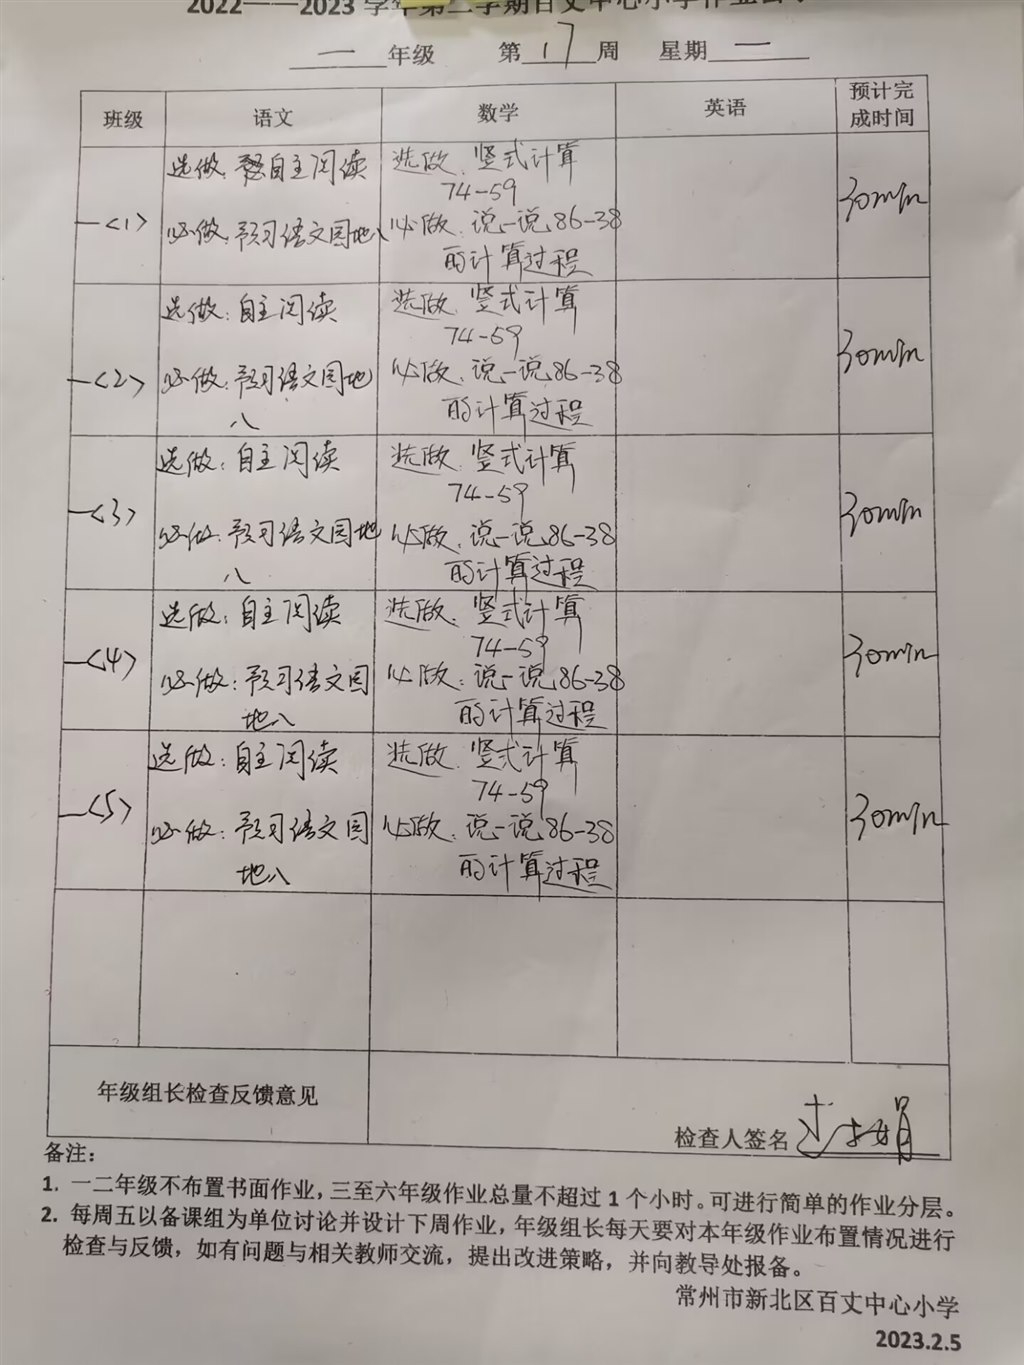 2022——2023 学年第二学期百丈中心小学作业公
一 年级 第 17 周 星期 一
班级 语文 数学 英语 预计完成时间
一<1>
选做: 自主阅读
必做: 预习语文园地八
选做. 竖式计算
74-59
必做. 说一说86-38
的计算过程
30min
一<2>
选做: 自主阅读
必做: 预习语文园地
八
选做. 竖式计算
74-59
必做. 说一说86-38
的计算过程
30min
一<3>
选做: 自主阅读
必做: 预习语文园地
八
选做. 竖式计算
74-59
必做. 说一说86-38
的计算过程
30min
一<4>
选做: 自主阅读
必做: 预习语文园
地八
选做. 竖式计算
74-59
必做. 说一说86-38
的计算过程
30min
一<5>
选做: 自主阅读
必做: 预习语文园
地八
选做. 竖式计算
74-59
必做. 说一说86-38
的计算过程
30min
年级组长检查反馈意见
检查人签名
备注:
1. 一二年级不布置书面作业，三至六年级作业总量不超过 1 个小时。可进行简单的作业分层。
2. 每周五以备课组为单位讨论并设计下周作业，年级组长每天要对本年级作业布置情况进行
检查与反馈，如有问题与相关教师交流，提出改进策略，并向教导处报备。
常州市新北区百丈中心小学
2023.2.5